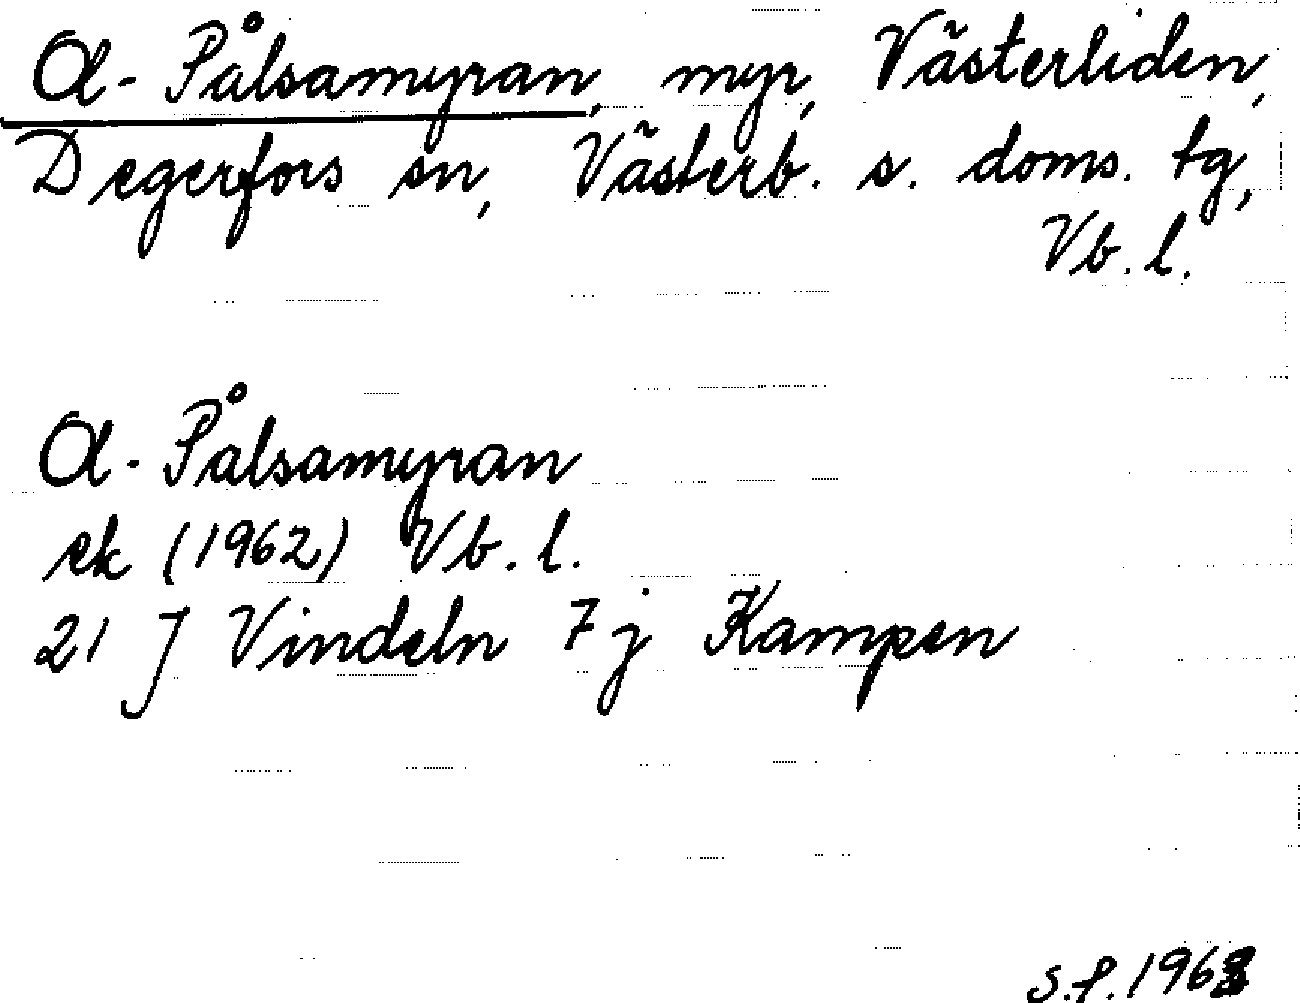 A-Pålsamyran, myr, Västerliden,
Degerfors sn, Västerb. s. doms. tg,
Vb. l.
A-Pålsamyran
ek (1962) Vb. l.
21 J Vindeln 7j Kampen
s.f. 1968